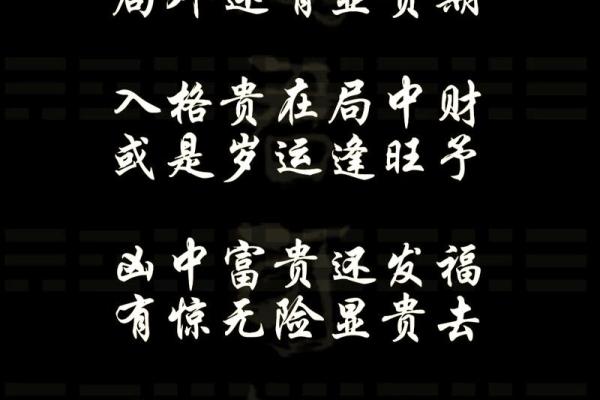 局外还有显贵期
入格贵在局中财
或是岁运逢旺予
凶中富贵还发福
有惊无险显贵去